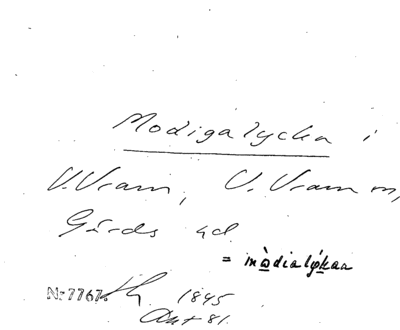 Modigalycka i
V. Vram, V. Vram m,
Gärds hd.
= mòdialýkaa
Nr 7767.
1845
Ant 81.